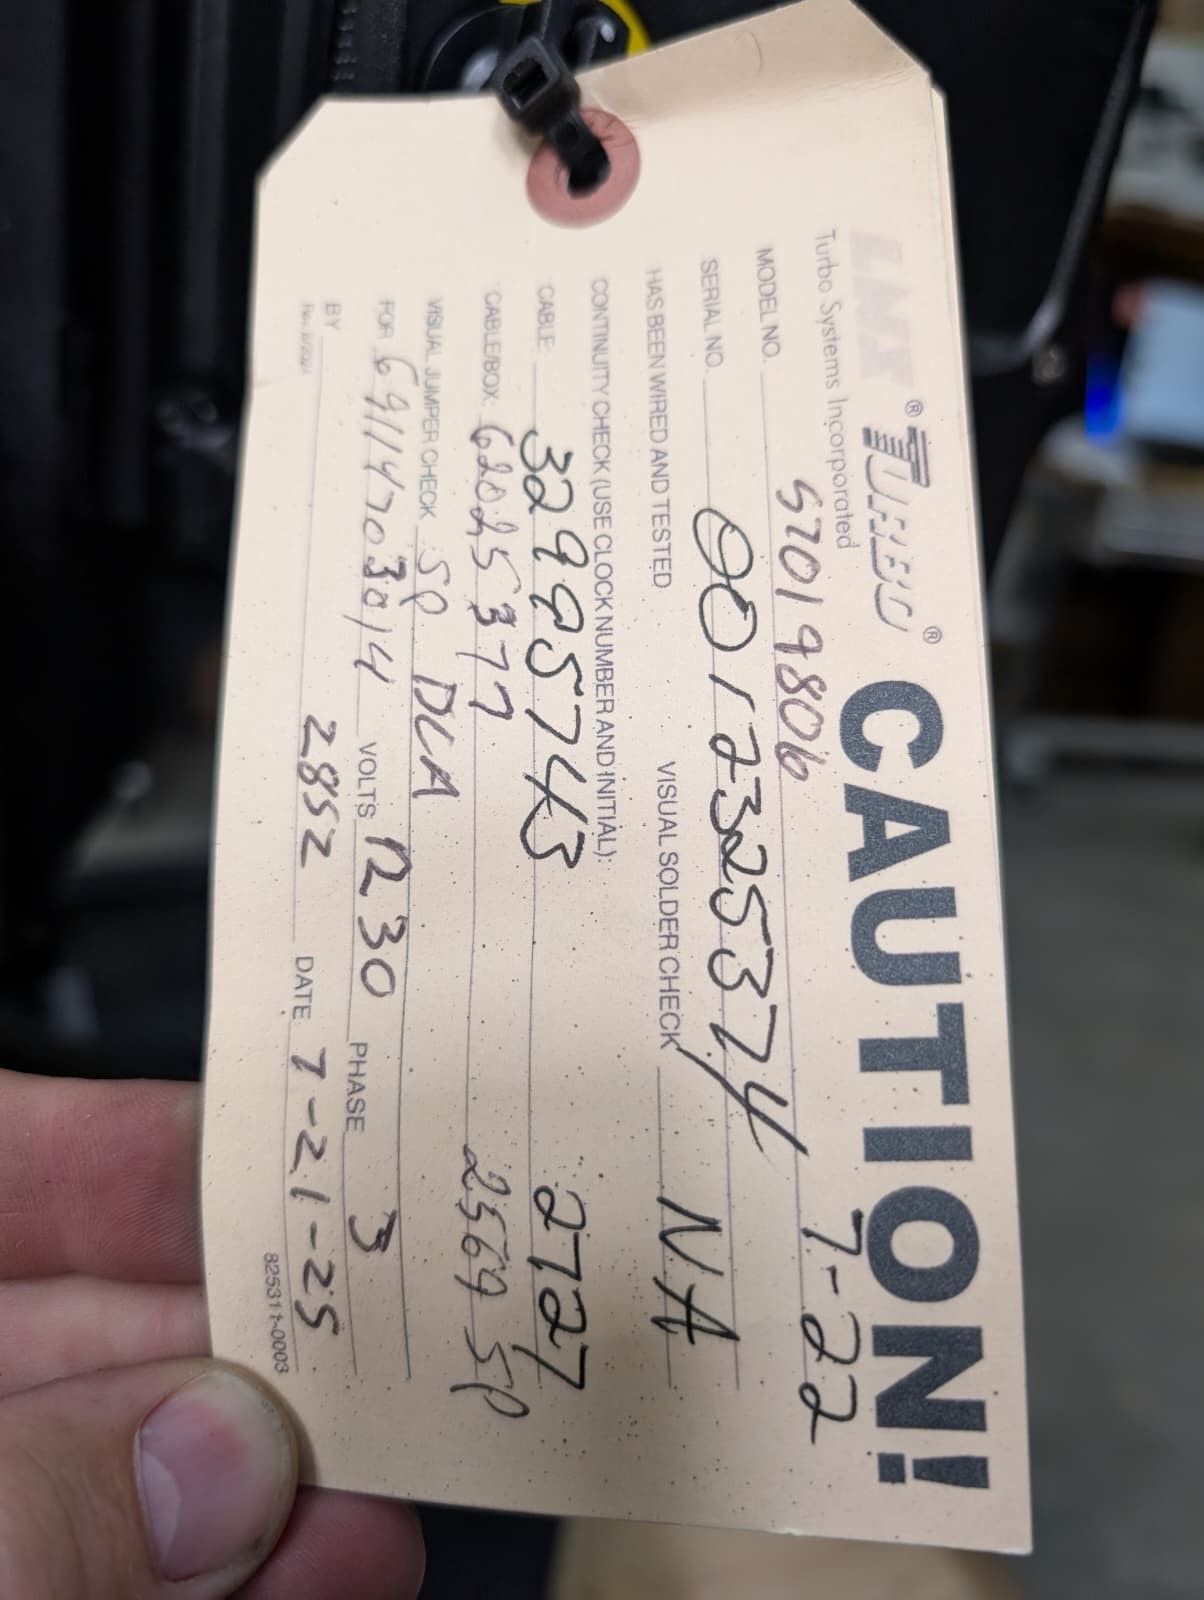 LMS® TURBO® CAUTION!
Turbo Systems Incorporated
MODEL NO. 57019806 7-22
SERIAL NO. 0012325374
HAS BEEN WIRED AND TESTED VISUAL SOLDER CHECK NA
CONTINUITY CHECK (USE CLOCK NUMBER AND INITIAL):
CABLE: 32995743 2727
CABLE/BOX: 62025377 2569 SP
VISUAL JUMPER CHECK SP DLA
FOR 6911470 3014 VOLTS 1230 PHASE 3
BY 2852 DATE 7-21-25
825311-0003